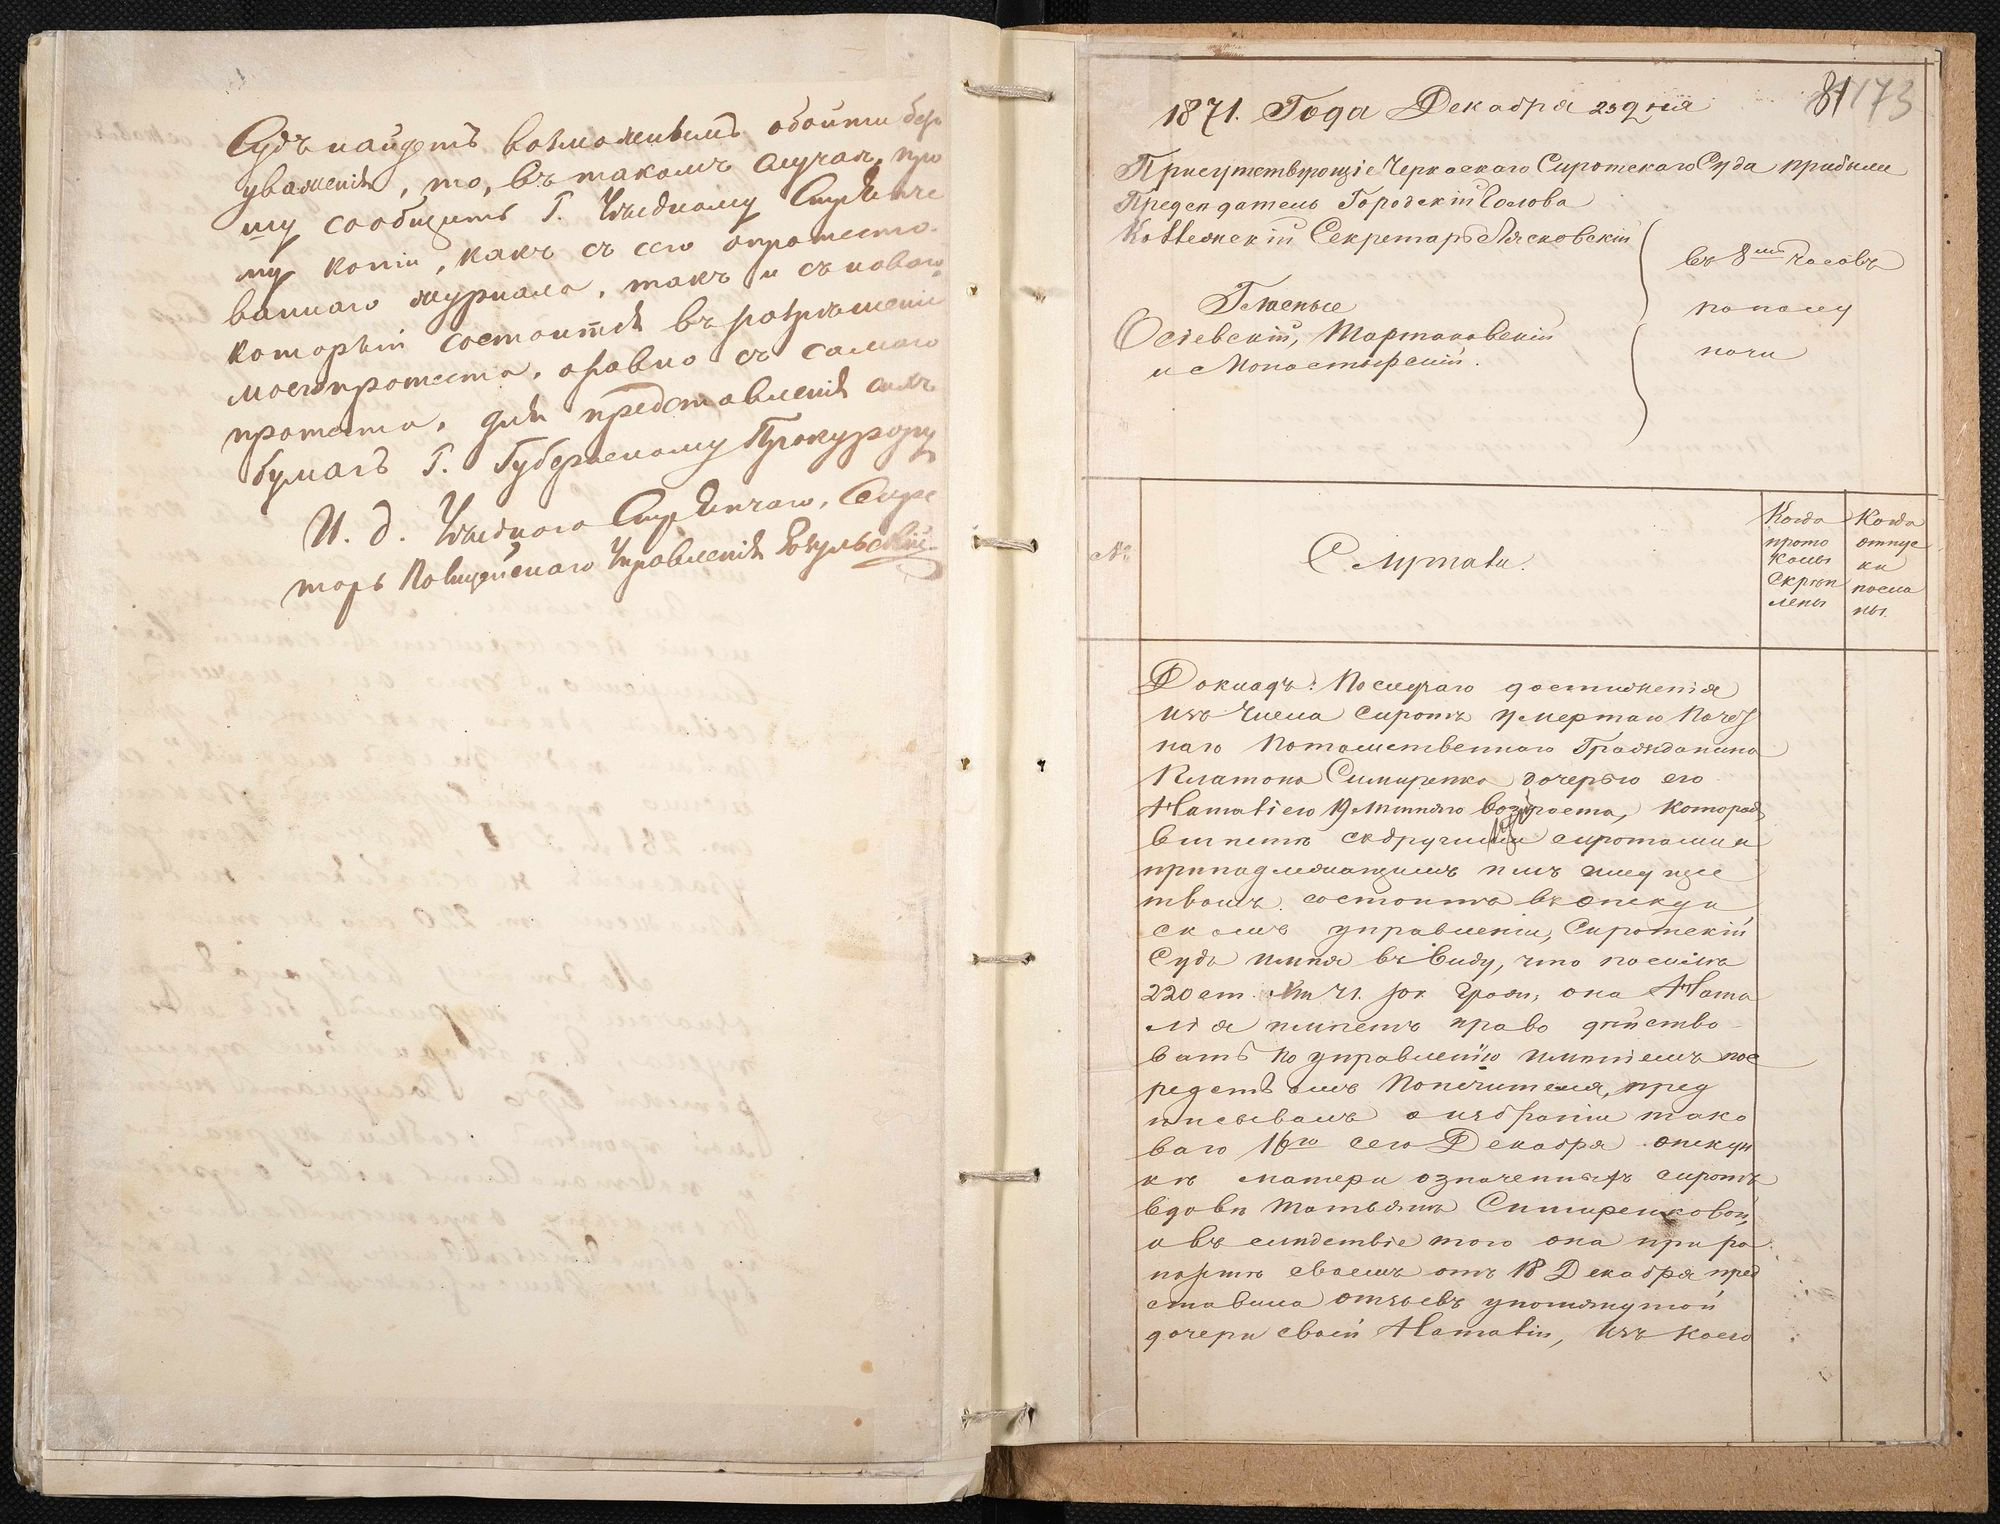 Судъ найдетъ возможнымъ обойти безъ
уваженія, то, въ такомъ случаѣ, про
шу сообщить Г. Уѣздному Стряпче
му копіи, какъ съ сего опротесто-
ваннаго журнала, такъ и съ новаго,
который состоится въ разрѣшеніи
моего протеста, а равно съ самаго
протеста, для представленія сихъ
бумагъ Г. Губернскому Прокурору
И. д. Уѣзднаго Стряпчаго, Секре
тарь Полицейскаго Управленія
81 173
1871. Года Декабря 23 дня
Присутствующіе Черкаскаго Сиротскаго Суда прибыли
Председатель Городскій Голова
Секретарь Лясковскій
въ 8мъ часовъ
Гласные
по полу
Мартаковскій
ночи
и Монастырскій.
№
Слушали.
Когда
прото
колы
скрѣп
лены
Когда
отпус
ки
посла
ны.
Докладъ: По случаю достиженія
изъ числа сиротъ умершаго Почет
наго Потомственнаго Гражданина
Платона Симиренка дочерью его
Наталіею 19 лѣтняго возраста, которая
вмѣстѣ съ другими сиротами и
принадлежащимъ имъ имуще
твомъ состоитъ въ опекун
скомъ управленіи, Сиротскій
Судъ имѣя въ виду, что по силѣ
220 ст. Гражд. она Ната
лія имѣетъ право дѣйство
вать по управленію имѣніемъ пос
редствомъ Попечителя, пред
писывалъ о избраніи тако
ваго 16го сего Декабря опекун
кѣ матери означенныхъ сиротъ
вдовѣ Татьянѣ Симиренковой,
а въ слѣдствіе того она при ра
портѣ своемъ отъ 18 Декабря пред
ставила отзывъ упомянутой
дочери своей Наталіи, изъ коего